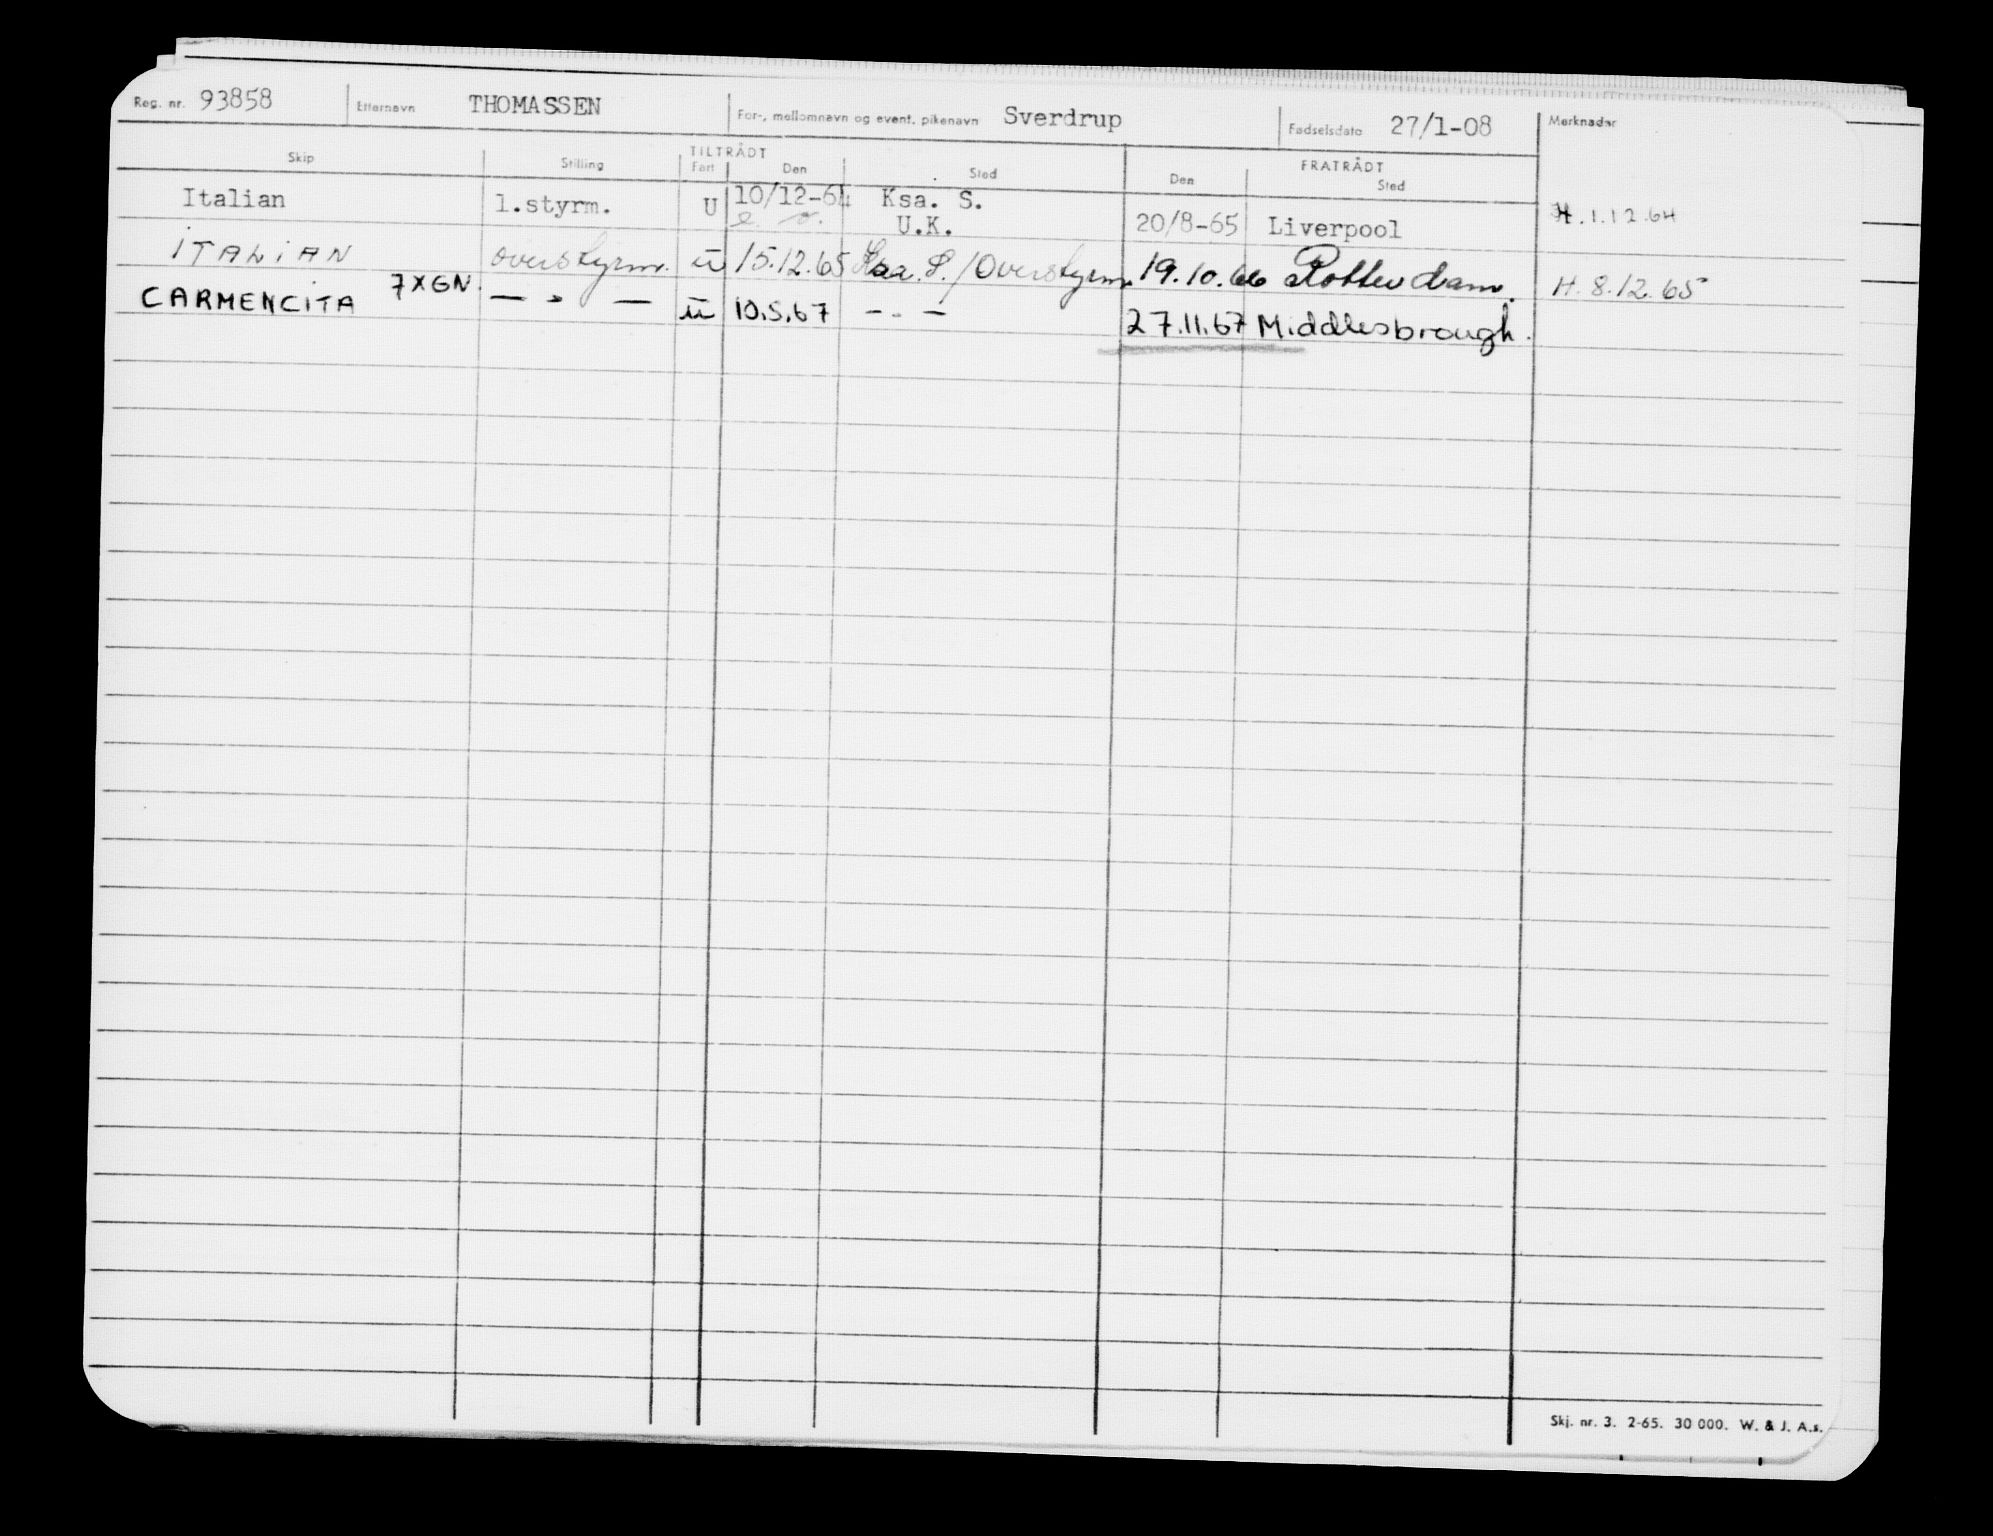 Reg. nr. 93858 Etternavn THOMASSEN For-, mellomnavn og event. pikenavn Sverdrup Fødselsdato 27/1-08 Merknader
TILTRÅDT FRATRÅDT
Skip Stilling Fart Den Sted Den Sted
Italian 1.styrm. U 10/12-64 Ksa. S. U.K. 20/8-65 Liverpool H. 1.12.64
ITALIAN overstyrm. ū 15.12.65 Ksa. S./Overstyrm. 19.10.66 Rotterdam. H. 8.12.65
CARMENCITA 7XGN. — " — ū 10.5.67 - . - 27.11.67 Middlesbrough.
Skj. nr. 3. 2-65. 30 000. W. & J. A.s.